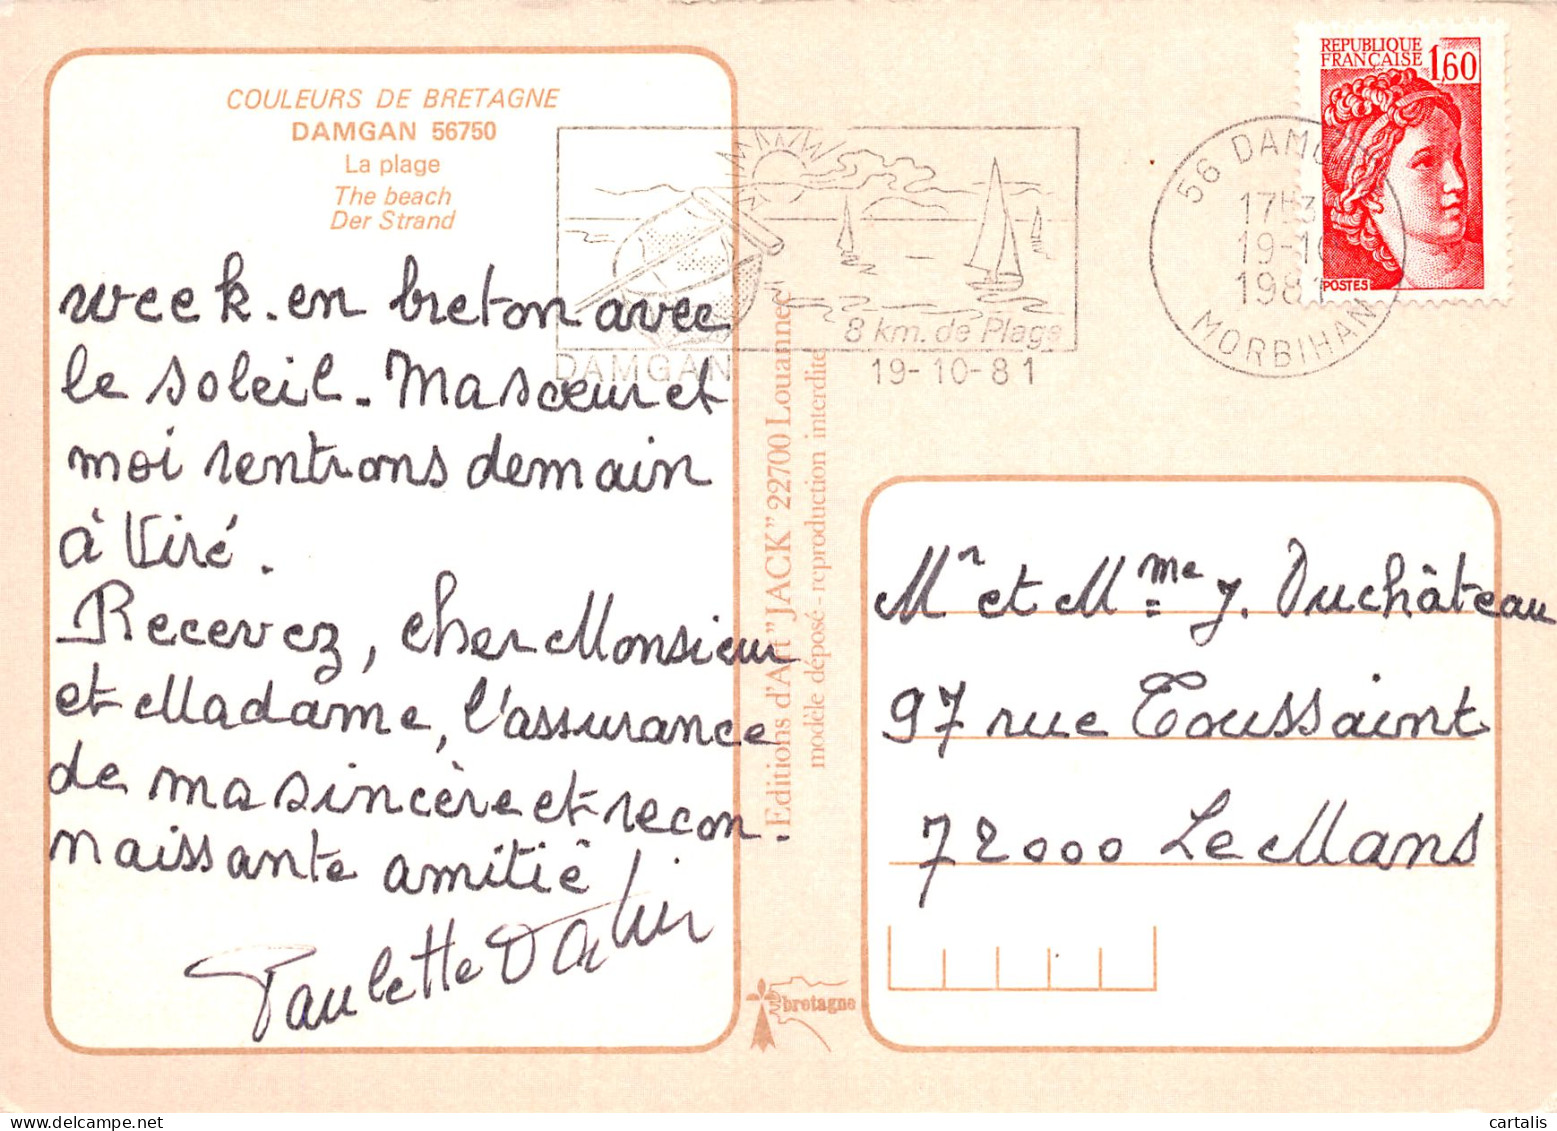 COULEURS DE BRETAGNE
DAMGAN 56750
La plage
The beach
Der Strand
week-en breton avec
le soleil. Ma soeur et
moi rentrons demain
à Viré.
Recevez, cher Monsieur
et Madame, l'assurance
de ma sincère et recon-
naissante amitié
Paulette
DAMGAN
8 km. de Plage
19-10-81
56 DAMGAN
17H3
19-10
1981
MORBIHAN
REPUBLIQUE
FRANÇAISE
1,60
POSTES
Editions d'Art "JACK" 22700 Louannec
modèle déposé - reproduction interdite
Mr et Mme J. Duchâteau
97 rue Toussaint
72000 Le Mans
bretagne
cartalis